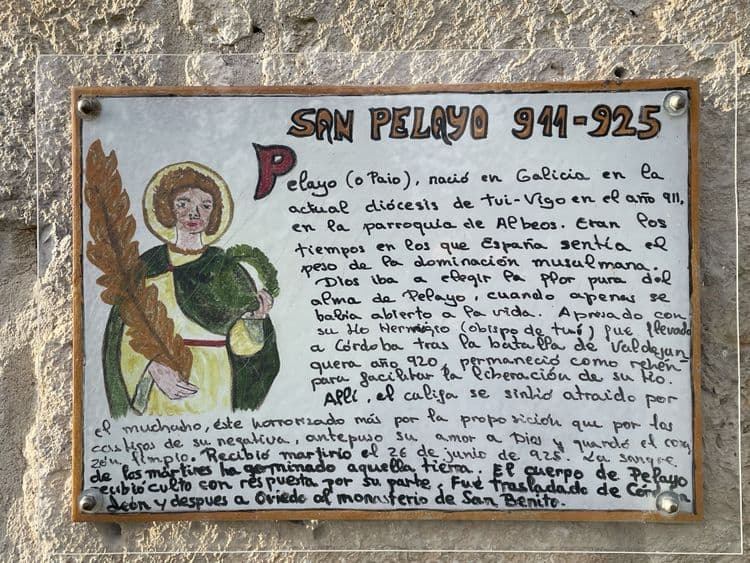 SAN PELAYO 911-925
Pelayo (o Paio), nació en Galicia en la
actual diócesis de Tui-Vigo en el año 911,
en la parroquia de Albeos. Eran los
tiempos en los que España sentía el
peso de la dominación musulmana.
Dios iba a elegir la flor pura del
alma de Pelayo, cuando apenas se
babia abierto a la vida. Apresado con
su tío Hermigio (obispo de tui) fue llevado
a Córdoba tras la batalla de Valdejun
quera año 920, permaneció como rehén
para facilitar la liberación de su tío.
Allí, el califa se sintió atraido por
el muchacho, éste horrorizado más por la proposición que por los
castigos de su negativa, antepuso su amor a Dios y guardó el cora
zón limpio. Recibió martirio el 26 de junio de 925. La sangre
de los mártires ha germinado aquella tierra. El cuerpo de Pelayo
recibió culto con respuesta por su parte. Fue trasladado de Córdoba
a León y despues a Oviedo al monasterio de San Benito.